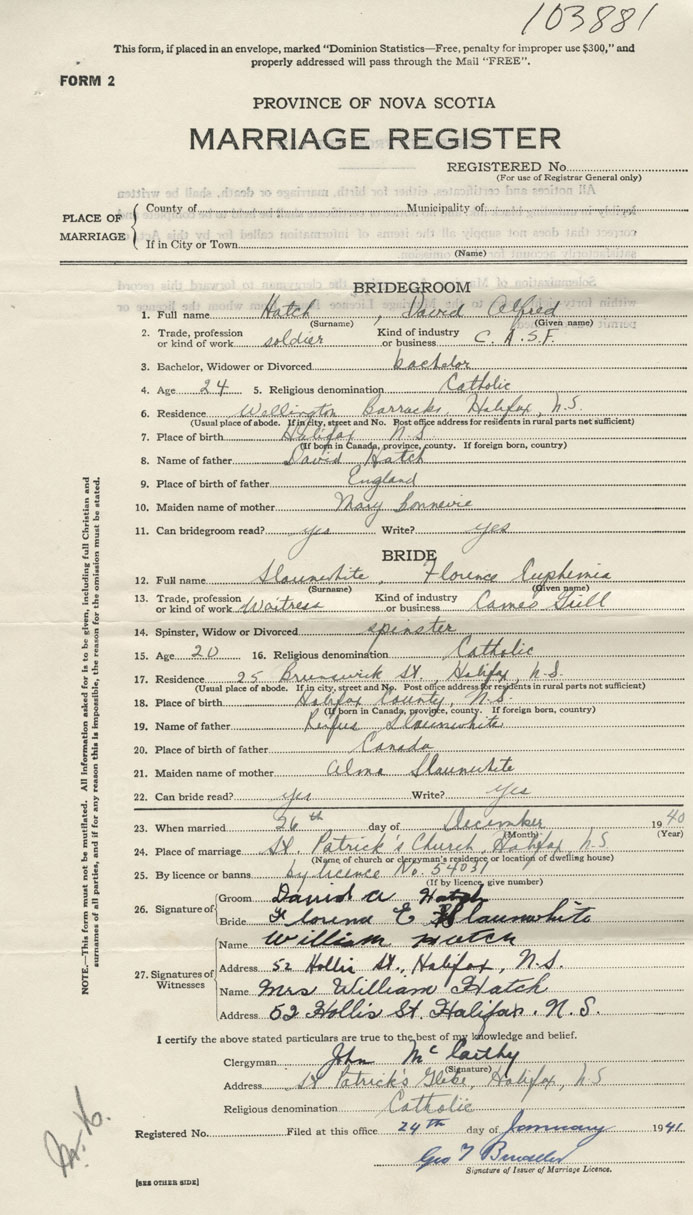 103881
This form, if placed in an envelope, marked "Dominion Statistics—Free, penalty for improper use $300," and
properly addressed will pass through the Mail "FREE".
FORM 2
PROVINCE OF NOVA SCOTIA
MARRIAGE REGISTER
REGISTERED No.
(For use of Registrar General only)
PLACE OF MARRIAGE
County of Municipality of
If in City or Town
(Name)
BRIDEGROOM
1. Full name Hatch, David Alfred
(Surname) (Given name)
2. Trade, profession or kind of work soldier Kind of industry or business C. A. S. F.
3. Bachelor, Widower or Divorced bachelor
4. Age 24 5. Religious denomination Catholic
6. Residence Wellington Barracks, Halifax, N.S.
(Usual place of abode. If in city, street and No. Post office address for residents in rural parts not sufficient)
7. Place of birth Halifax N.S.
(If born in Canada, province, county. If foreign born, country)
8. Name of father David Hatch
9. Place of birth of father England
10. Maiden name of mother Mary
11. Can bridegroom read? yes Write? yes
BRIDE
12. Full name Slaunwhite, Florence Euphemia
(Surname) (Given name)
13. Trade, profession or kind of work Waitress Kind of industry or business Cameo Grill
14. Spinster, Widow or Divorced spinster
15. Age 20 16. Religious denomination Catholic
17. Residence 25 Brunswick St, Halifax, N.S.
(Usual place of abode. If in city, street and No. Post office address for residents in rural parts not sufficient)
18. Place of birth Halifax County, N.S.
(If born in Canada, province, county. If foreign born, country)
19. Name of father Rufus Slaunwhite
20. Place of birth of father Canada
21. Maiden name of mother Alma Slaunwhite
22. Can bride read? yes Write? yes
23. When married 26th day of December 1940
(Month) (Year)
24. Place of marriage St. Patrick's Church, Halifax N.S.
(Name of church or clergyman's residence or location of dwelling house)
25. By licence or banns by licence No. 54031
(If by licence, give number)
26. Signature of
Groom David A Hatch
Bride Florence E Slaunwhite
27. Signatures of Witnesses
Name William Hatch
Address 52 Hollis St., Halifax, N.S.
Name Mrs William Hatch
Address 52 Hollis St. Halifax. N.S.
I certify the above stated particulars are true to the best of my knowledge and belief.
Clergyman John McCarthy
(Signature)
Address St Patrick's Glebe, Halifax, N.S
Religious denomination Catholic
Registered No. Filed at this office 24th day of January 1941.
Geo
Signature of Issuer of Marriage Licence.
[SEE OTHER SIDE]
NOTE.—This form must not be mutilated. All information asked for is to be given, including full Christian and
surnames of all parties, and if for any reason this is impossible, the reason for the omission must be stated.